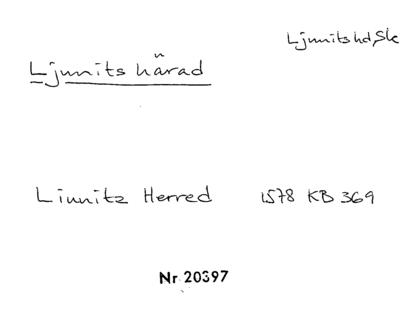 Ljunits hd, Sk
Ljunits härad
Liunitz Herred 1578 KB 369
Nr 20397